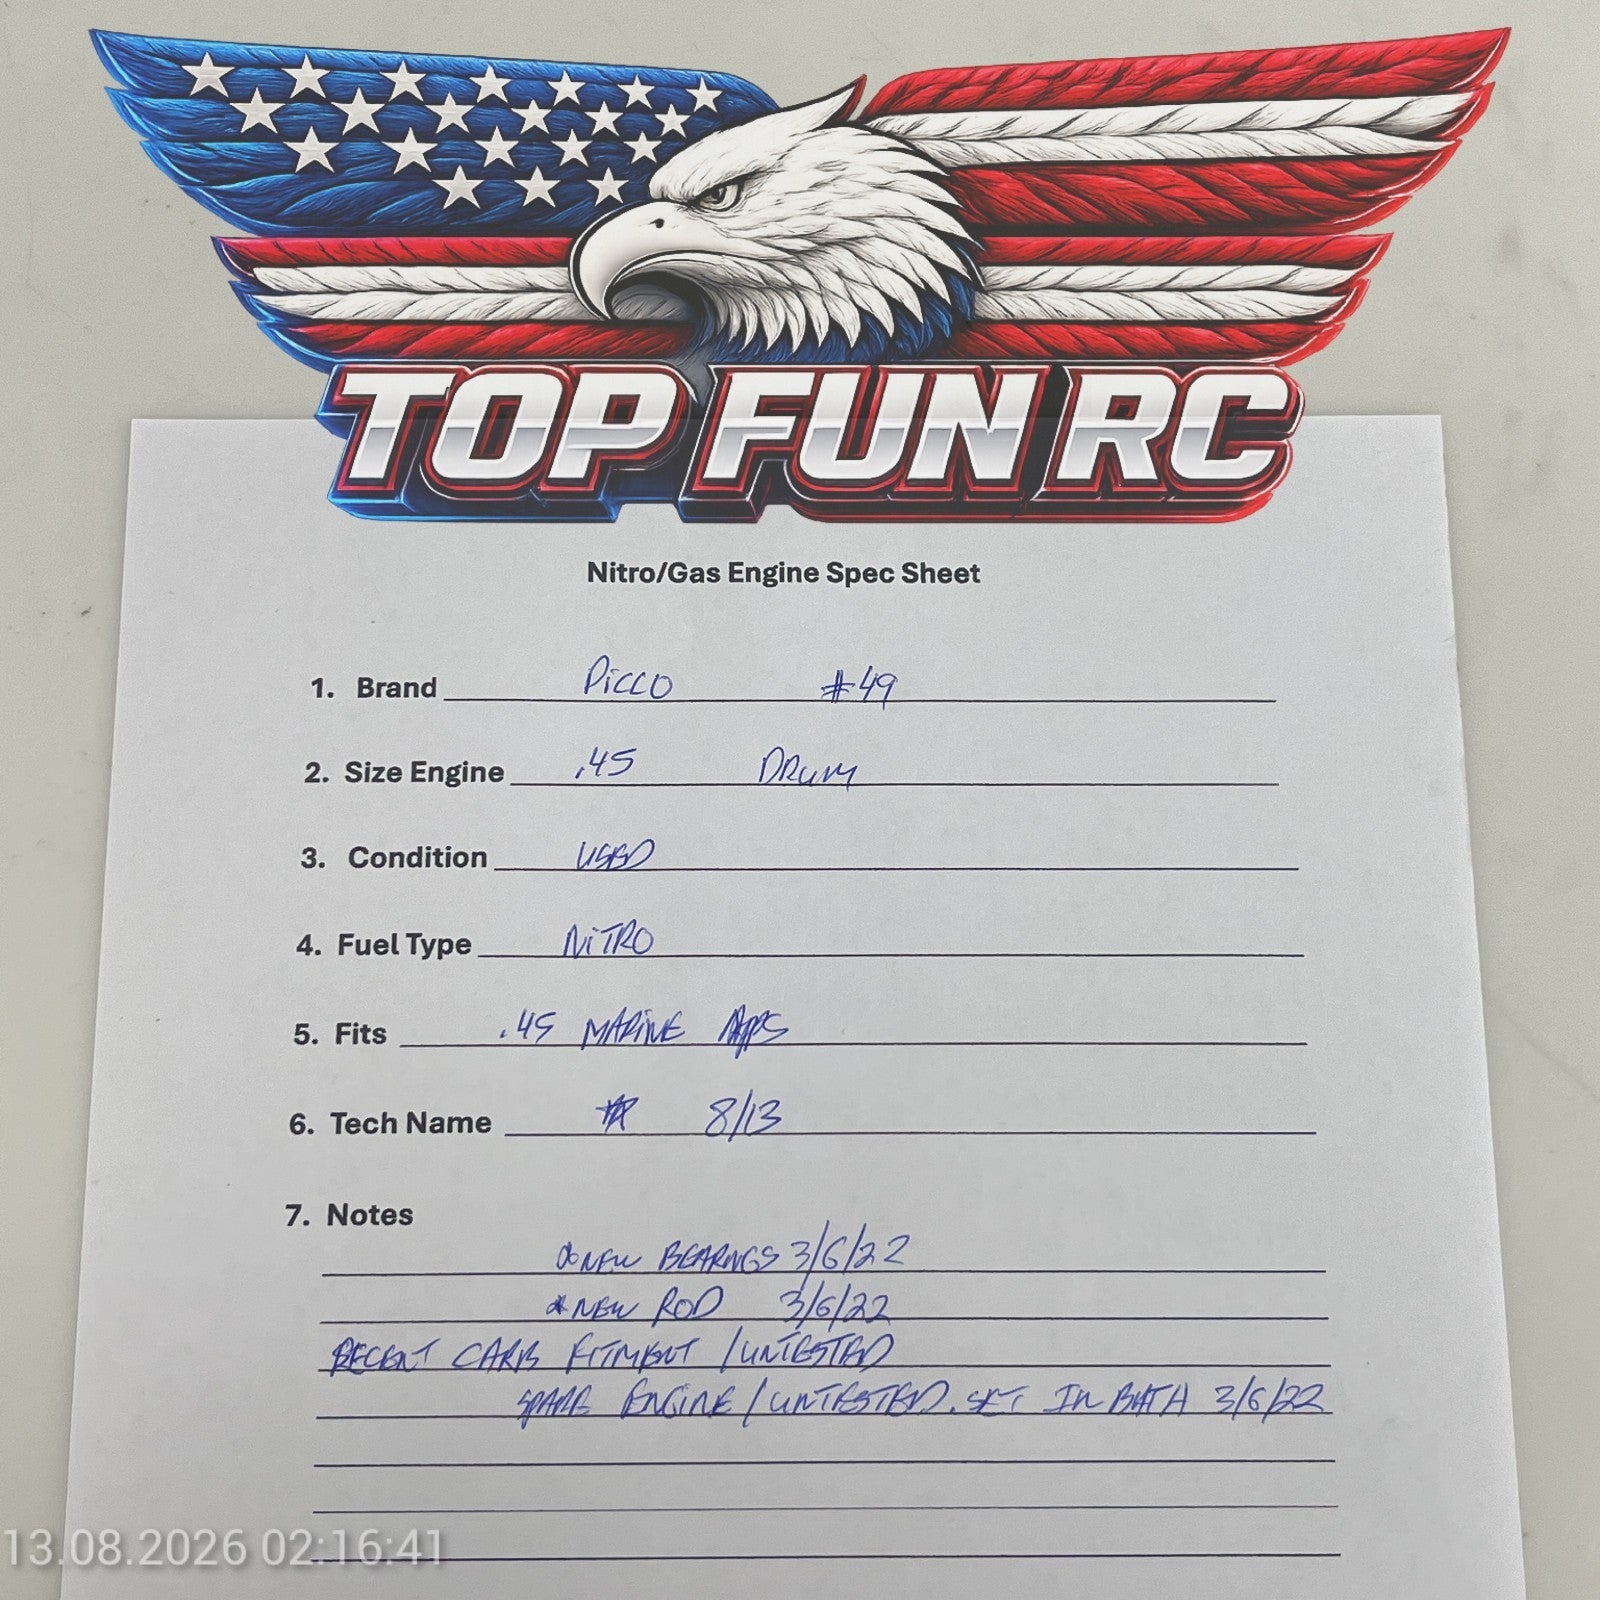 TOP FUN RC
Nitro/Gas Engine Spec Sheet
1. Brand PICCO #49
2. Size Engine .45 DRUM
3. Condition USED
4. Fuel Type NITRO
5. Fits .45 MARINE APPS
6. Tech Name 8/13
7. Notes
NEW BEARINGS 3/6/22
* NEW ROD 3/6/22
RECENT CARB FITMENT / UNTESTED
SPARE ENGINE / UNTESTED. SET IN BATH 3/6/22
13.08.2026 02:16:41